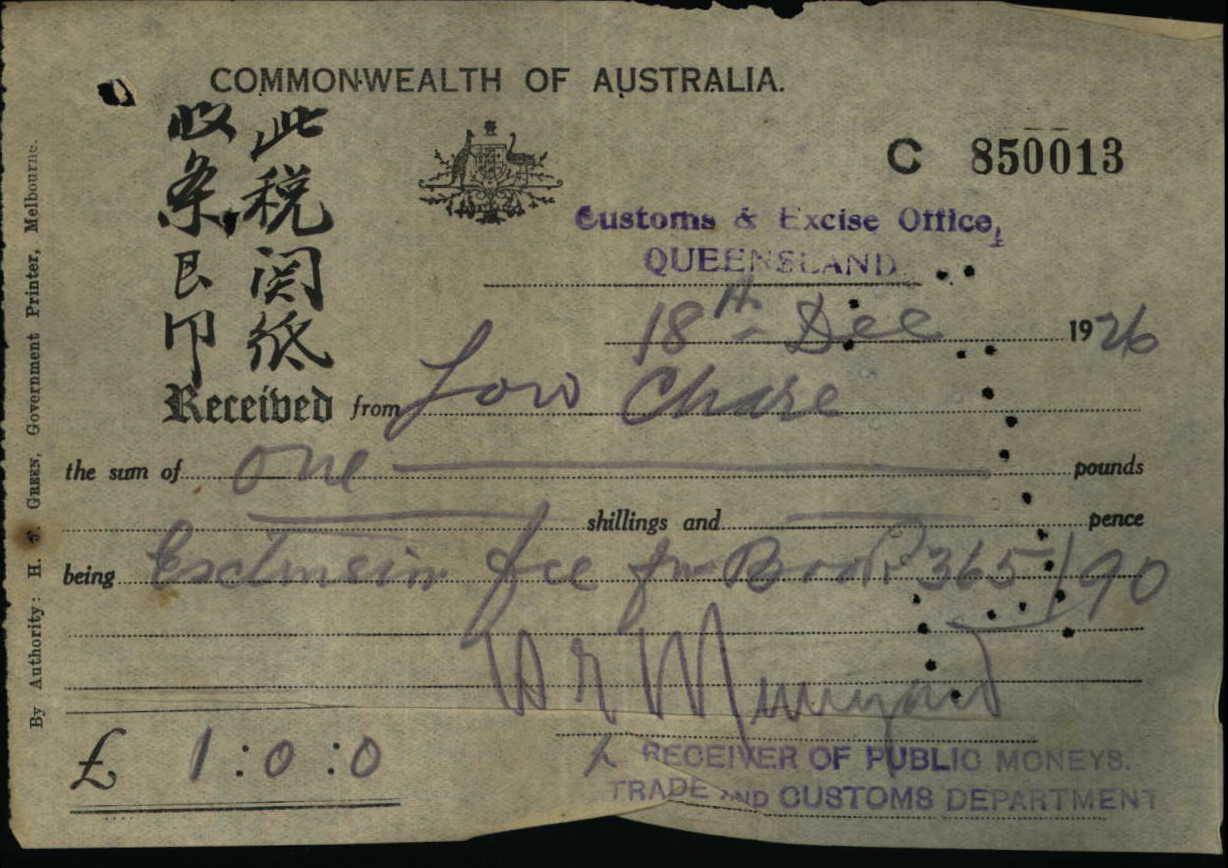 COMMONWEALTH OF AUSTRALIA.
此税関纸
收条已印
C 850013
Customs & Excise Office,
QUEENSLAND
18th Dec 1926
Received from Low Chare
the sum of One pounds
shillings and pence
being fee for Book 365/90
£ 1:0:0
RECEIVER OF PUBLIC MONEYS.
TRADE AND CUSTOMS DEPARTMENT
By Authority: H. J. GREEN, Government Printer, Melbourne.